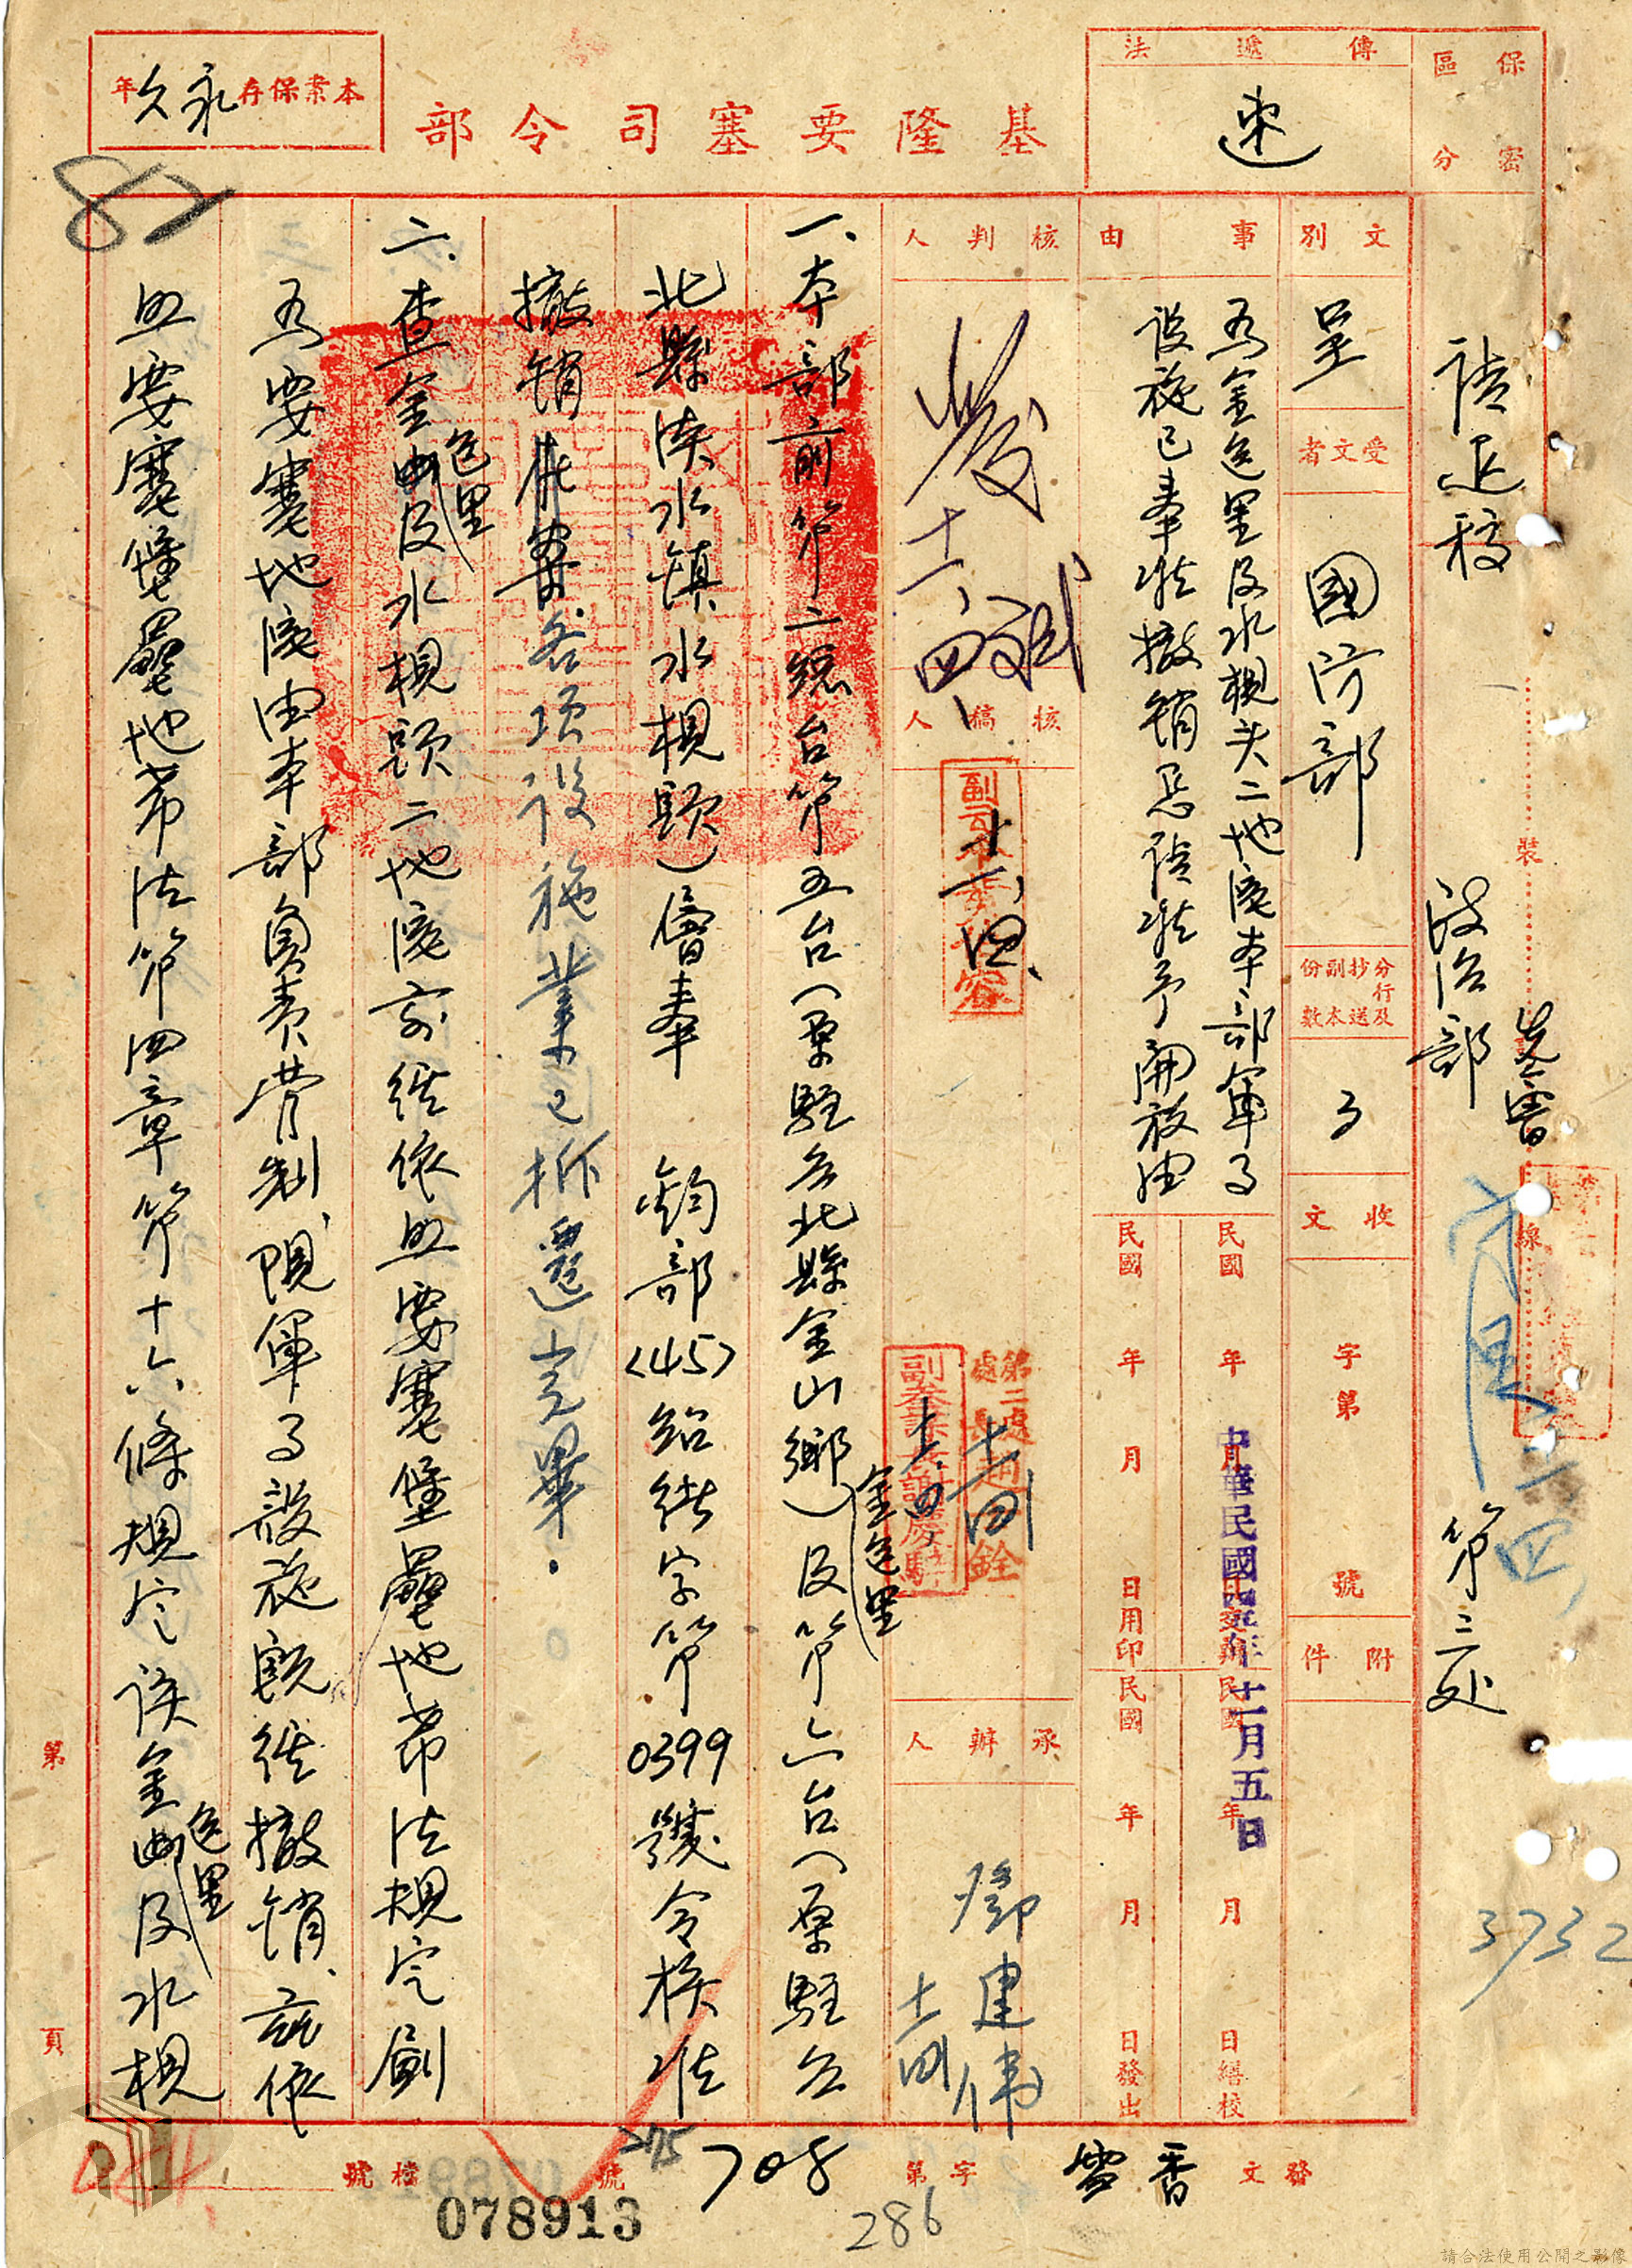 保密區分
傳遞法
速
基隆要塞司令部
本案保存永久年
82
請退稿
政治部
先會
第三處
3732
裝
線
文別
呈
受文者
國防部
分行及抄送副本份數
收文
字第
號
附件
事由
為金包里及水梘头二地區本部軍事
設施已奉准撤銷恳請准予開放由
民國 年 月 日繕校
民國 年 月 日用印
民國 年 月 日發出
中華民國四五年十一月五日
核判人
發
十一、四
核稿人
十一、四、
第二處
副參謀長謝慶
十一、四、
承辦人
鄧建偉
十一、四
一、本部前第二總台第五台（原駐台北縣金山鄉）金包里及第六台（原駐台
北縣淡水鎮水梘頭）僉奉　鈞部<45>紹綨字第0399號令核准
撤銷在案各項設施業已拆遷完畢.
二、查金包里及水梘頭二地區前經依照要塞堡壘地帶法規定劃
為要塞地區由本部負責管制現軍事設施既經撤銷、茲依
照要塞堡壘地帶法第四章第十六條規定該金包里及水梘
第
頁
發文
雪香
字第
705
號
275
檔號
078913
286
請合法使用公開之影像